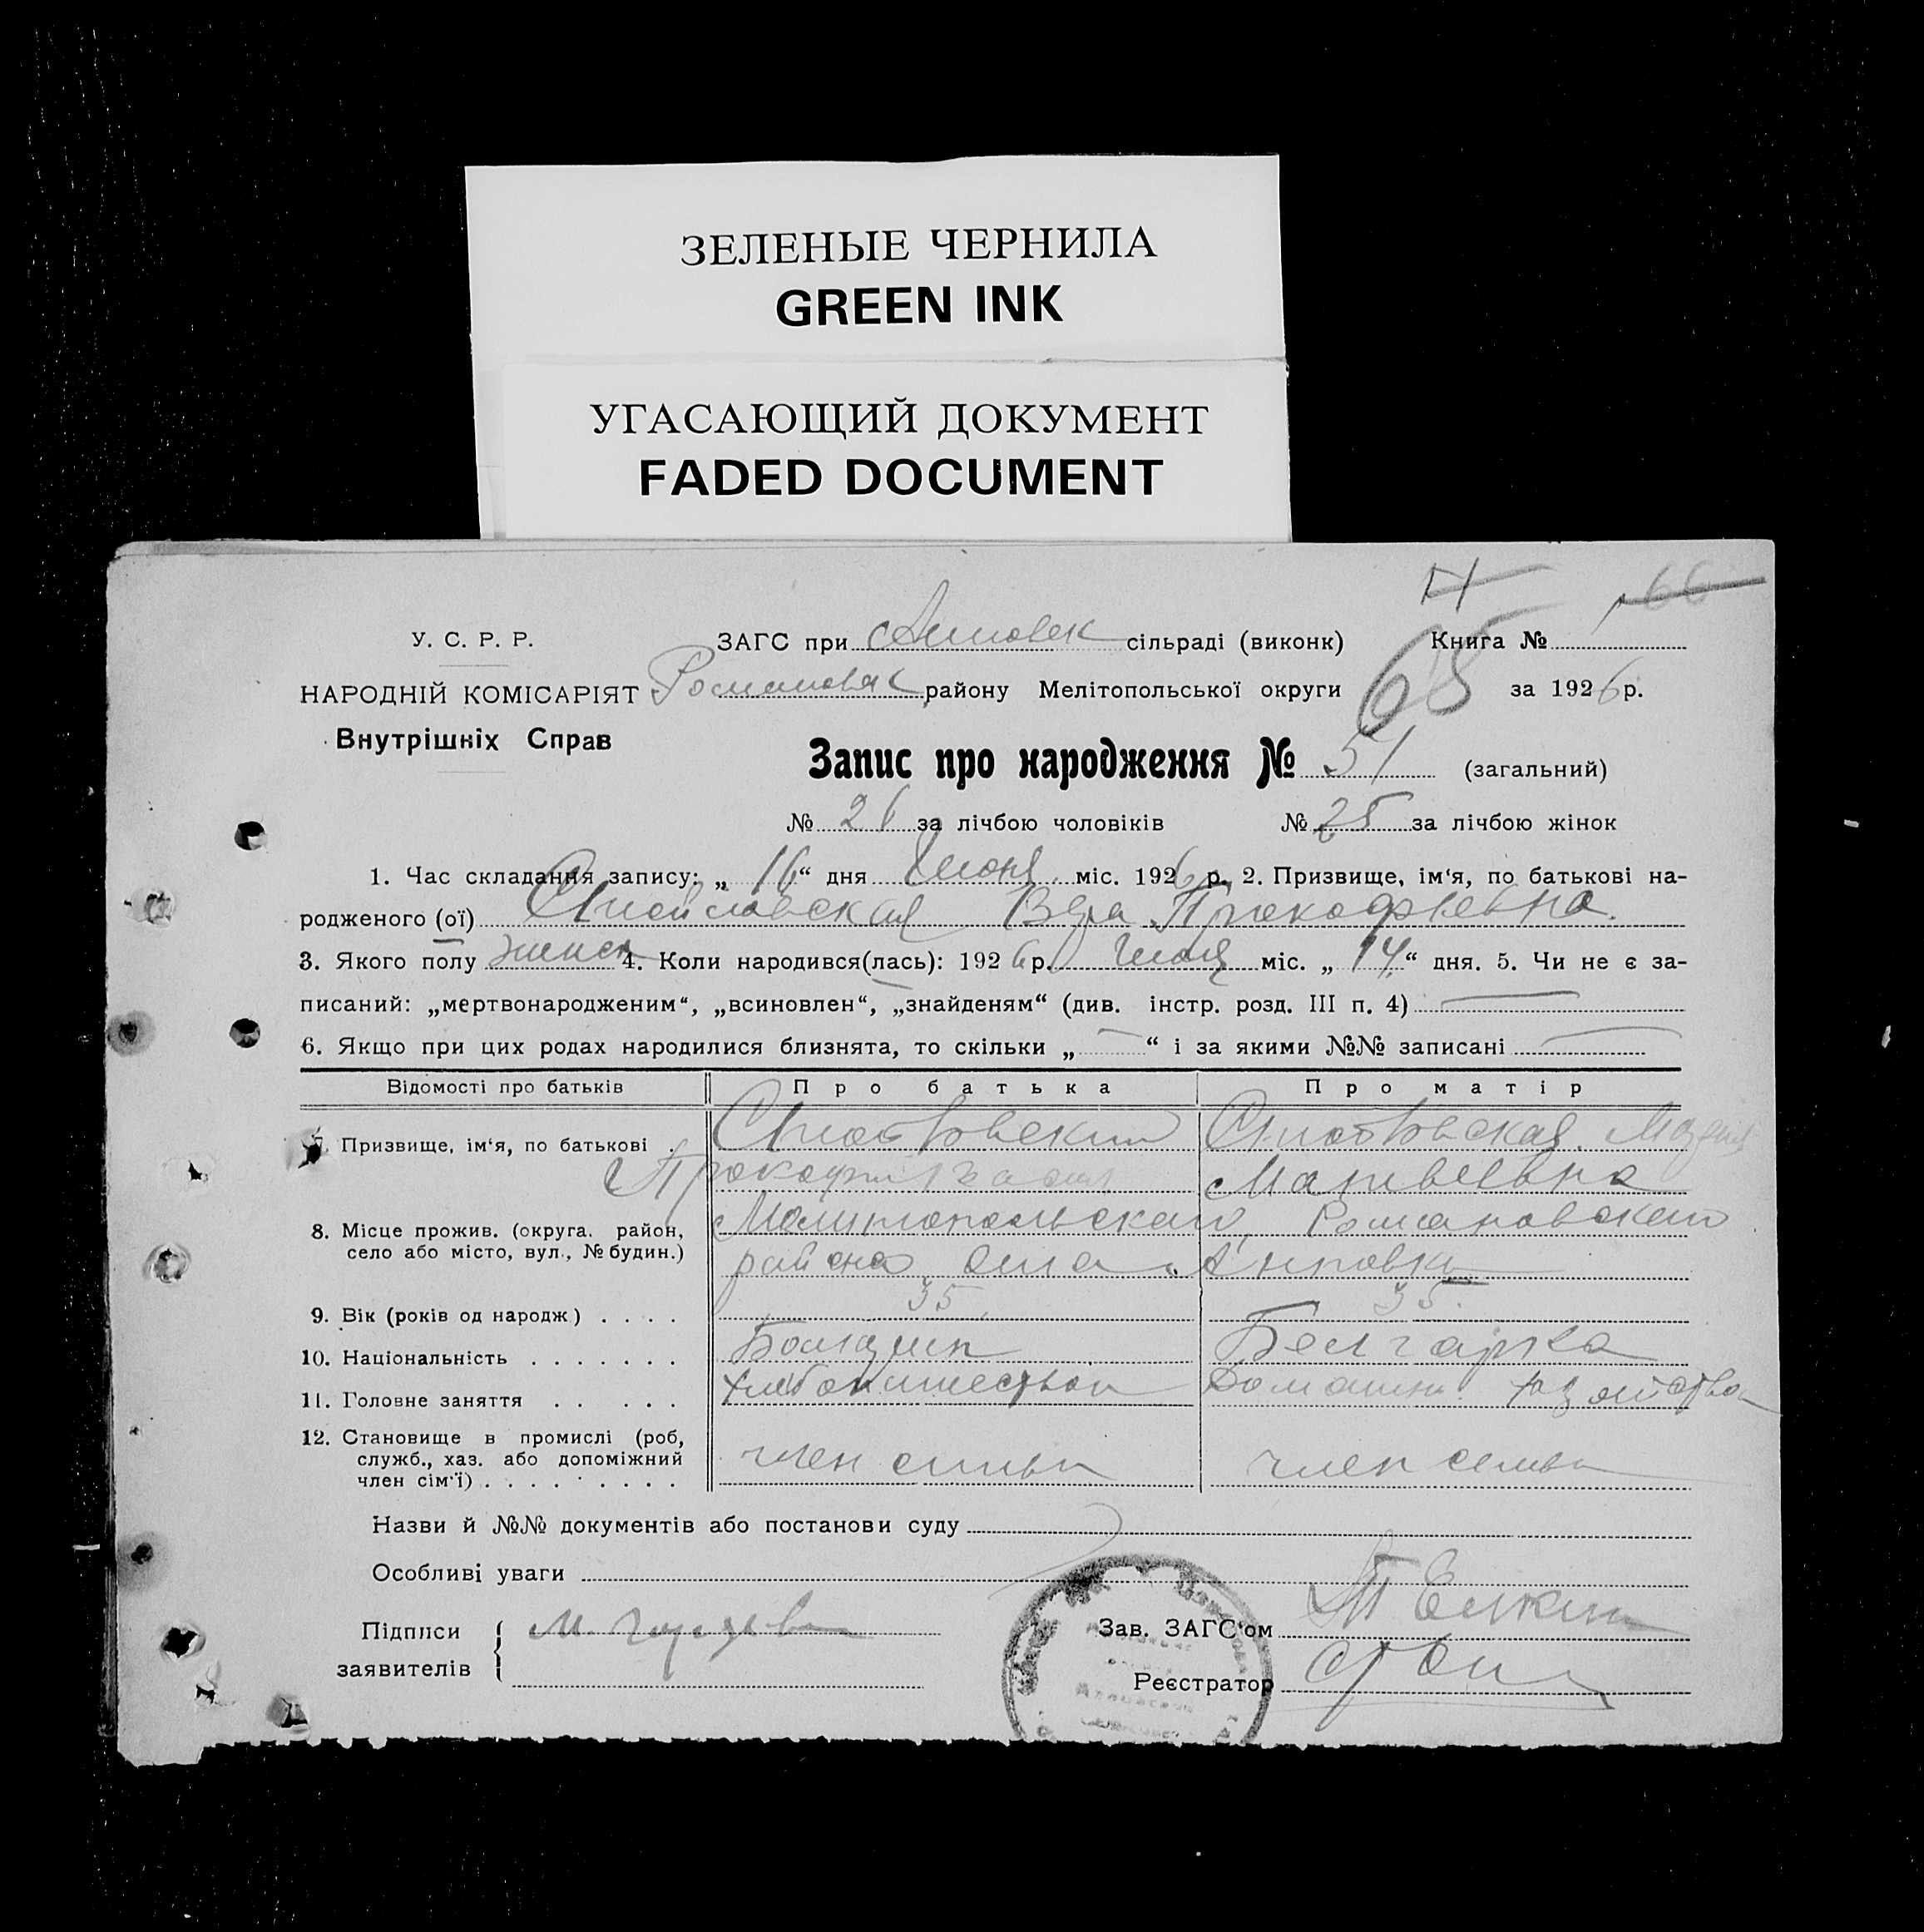 ЗЕЛЕНЫЕ ЧЕРНИЛА
GREEN INK
УГАСАЮЩИЙ ДОКУМЕНТ
FADED DOCUMENT
66
У. С. Р. Р. ЗАГС при сільраді (виконк) Книга №
НАРОДНІЙ КОМІСАРІЯТ Романовск району Мелітопольської округи 68 за 1926 р.
Внутрішніх Справ
Запис про народження № 51 (загальний)
№ 26 за лічбою чоловіків № 25 за лічбою жінок
1. Час складання запису: „16“ дня Июня міс. 1926 р. 2. Призвище, ім‘я, по батькові на-
родженого (ої) Вера Прокофьевна
3. Якого полу женск 4. Коли народився(лась): 1926 р. Июня міс. „14“ дня. 5. Чи не є за-
писаний: „мертвонародженим“, „всиновлен“, „знайденям“ (див. інстр. розд. III п. 4)
6. Якщо при цих родах народилися близнята, то скільки „ “ і за якими №№ записані
Відомості про батьків Про батька Про матір
7. Призвище, ім‘я, по батькові
Прокофий Матвеевна
8. Місце прожив. (округа, район, Мелитопольского, Романовского
село або місто, вул., № будин.) района села Анновка
9. Вік (років од народж) 35 35
10. Національність Болгарин Болгарка
11. Головне заняття Хлебопашество Домашн. хозяйство
12. Становище в промислі (роб, служб., хаз. або допоміжний член сім‘ї) член семьи член семьи
Назви й №№ документів або постанови суду
Особливі уваги
Підписи заявителів М.
Зав. ЗАГС‘ом
Реєстратор